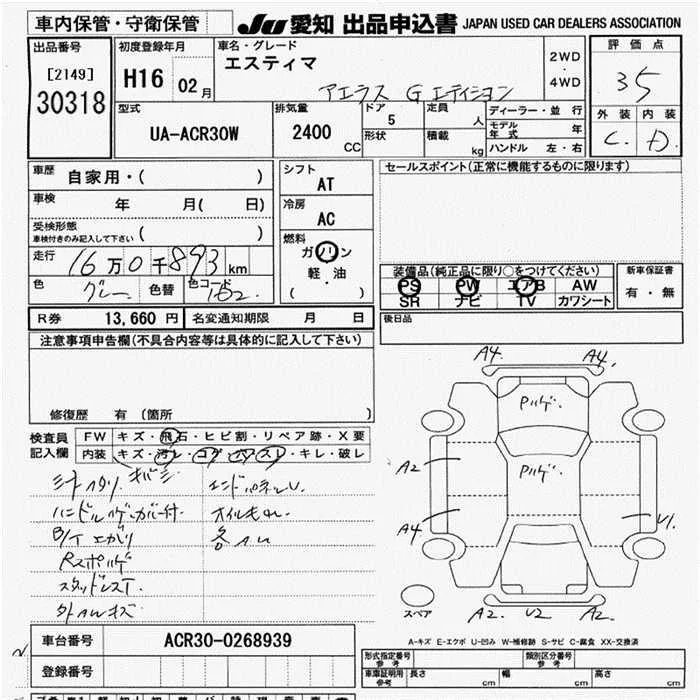 車内保管・守衛保管 JU 愛知 出品申込書 JAPAN USED CAR DEALERS ASSOCIATION
出品番号
[2149]
30318
初度登録年月
H16 02月
車名・グレード
エスティマ
アエラス G エディション
2WD
・
4WD
評価点
3.5
外装 内装
C. D.
型式
UA-ACR30W
排気量
2400
CC
ドア
5
形状
定員
人
積載
kg
ディーラー・並行
モデル年式 年
ハンドル 左・右
車歴 自家用・( )
車検 年 月( 日)
受検形態
車検付きのみ記入して下さい ( )
走行 16万0千893km
色 グレー 色替 色コード 1B2
シフト
AT
冷房
AC
燃料
ガソリン
軽・油
( )
セールスポイント(正常に機能するものに限ります)
装備品(純正品に限り○をつけてください)
PS PW エアB AW
SR ナビ TV カワシート
新車保証書
有・無
後日品
R券 13,660円 名変通知期限 月 日
注意事項申告欄(不具合内容等は具体的に記入して下さい)
修復歴 有(箇所 )
検査員記入欄
FW キズ・飛石・ヒビ割・リペア跡・X要
内装 キズ・汚レ・コゲ・ハ゜・スレ・キレ・破レ
エンドパネルU.
ハンドルハゲ.カバー付
オイルモレ.
各AU
Rスポハゲ
スタッドレスT.
外AWキズ
A4 A4
Pハゲ.
Pハゲ.
A2
A4
U1
スペア
A2. U2 A2.
A-キズ E-エクボ U-凹み W-補修跡 S-サビ C-腐食 XX-交換済
車台番号 ACR30-0268939
登録番号
形式指定番号 参考
類別区分番号 参考
車庫証明用 参考 長さ cm 幅 cm 高さ cm